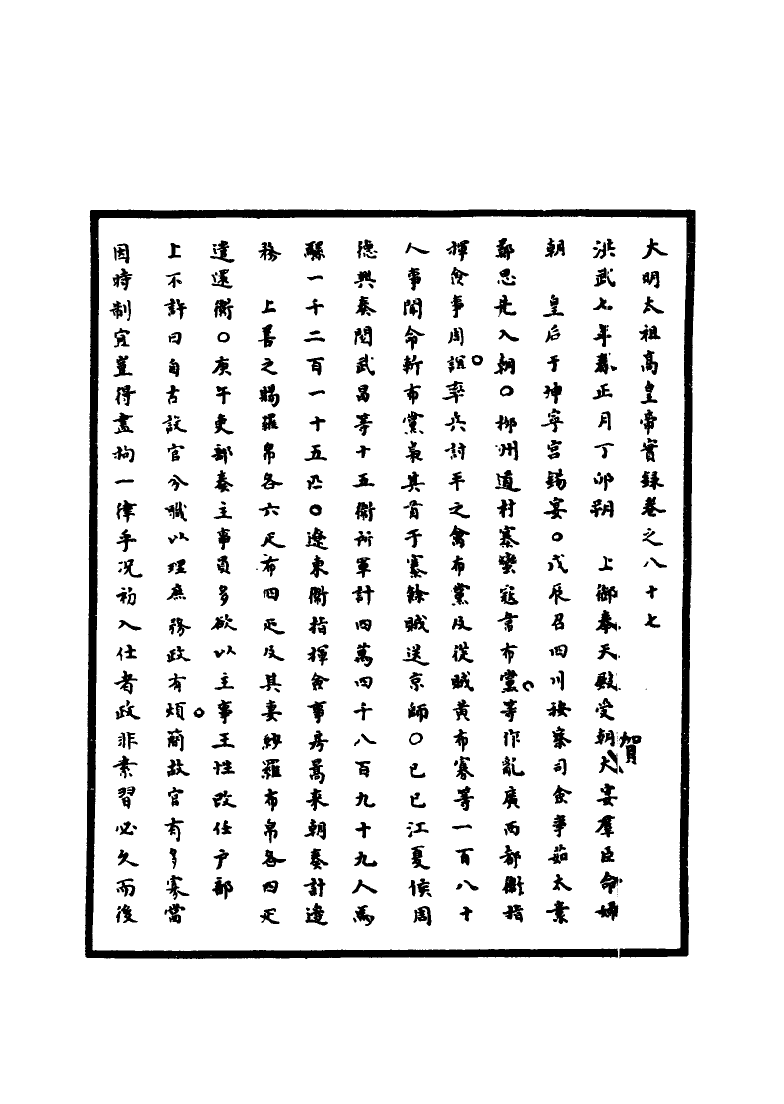 大明太祖高皇帝實錄卷之八十七
洪武七年春正月丁卯朔　上御奉天殿受朝賀大宴羣臣命婦
朝　皇后于坤寧宮錫宴○戊辰召四川按察司僉事茹太素
鄭思先入朝○郴州道村寨蠻寇韋布黨等作亂廣西都衛指
揮僉事周誼率兵討平之禽布黨及從賊黃布寨等一百八十
人事聞命斬布黨梟其首于寨餘賊送京師○己巳江夏侯周
德興奏閱武昌等十五衛所軍計四萬四千八百九十九人馬
騾一千二百一十五匹○遼東衛指揮僉事房暠來朝奏計邊
務　上善之賜羅帛各六疋布四疋及其妻紗羅布帛各四疋
遣還衛○庚午吏部奏主事員多欲以主事王性改任戶部
上不許曰自古設官分職以理庶務政有煩簡故官有多寡當
因時制宜豈得盡拘一律乎况初入仕者政非素習必久而後